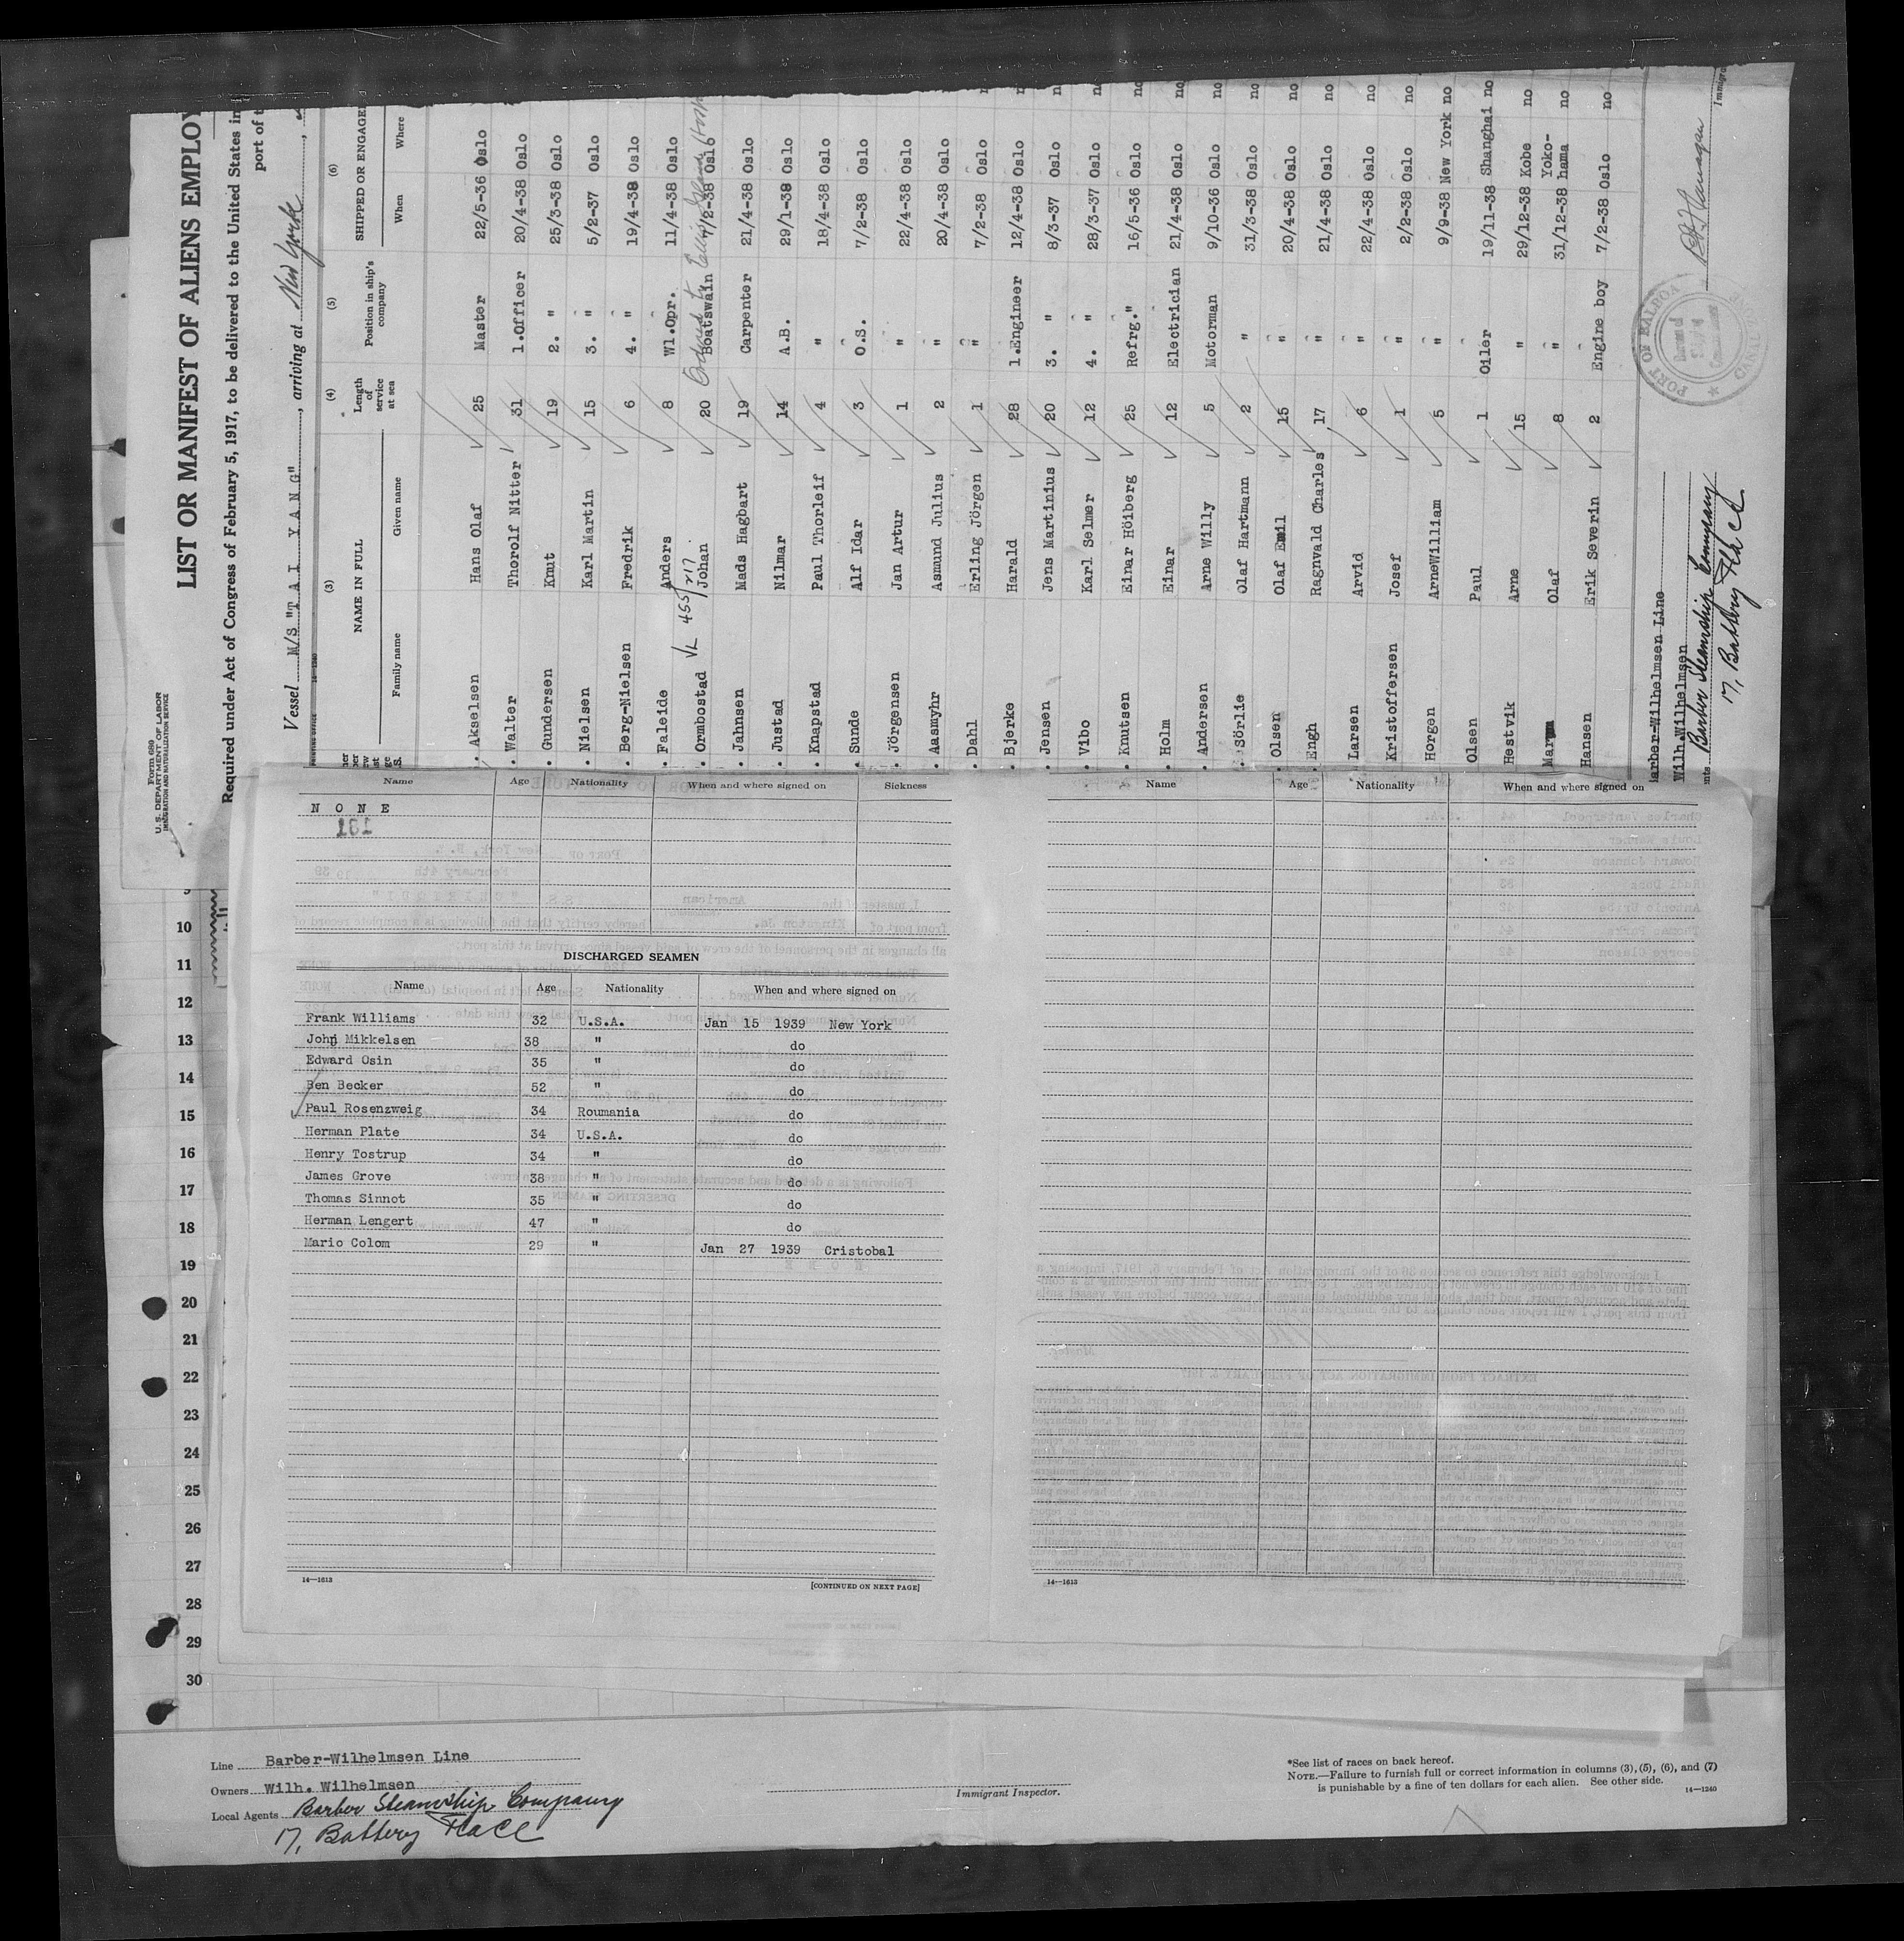 Form 680
U. S. DEPARTMENT OF LABOR
IMMIGRATION AND NATURALIZATION SERVICE
LIST OR MANIFEST OF ALIENS EMPLOY
Required under Act of Congress of February 5, 1917, to be delivered to the United States im
port of t
Vessel M/S "TAI YANG", arriving at New York,
(3) (4) (5) (6)
NAME IN FULL Length of service at sea Position in ship's company SHIPPED OR ENGAGED
Family name Given name When Where
Akselsen Hans Olaf 25 Master 22/5-36 Oslo
Walter Thorolf Nitter 31 1.Officer 20/4-38 Oslo no
Gundersen Knut 19 2. " 25/3-38 Oslo no
Nielsen Karl Martin 15 3. " 5/2-37 Oslo no
Berg-Nielsen Fredrik 6 4. " 19/4-38 Oslo no
Faleide Anders 8 Wl.Opr. 11/4-38 Oslo no
Ormbostad VL 455/217 Johan 20 Boatswain 7/2-38 Oslo
Jahnsen Mads Hagbart 19 Carpenter 21/4-38 Oslo no
Justad Nilmar 14 A.B. 29/1-38 Oslo no
Knapstad Paul Thorleif 4 " 18/4-38 Oslo no
Sunde Alf Idar 3 O.S. 7/2-38 Oslo no
Jörgensen Jan Artur 1 " 22/4-38 Oslo no
Aasmyhr Asmund Julius 2 " 20/4-38 Oslo no
Dahl Erling Jörgen 1 " 7/2-38 Oslo
Bjerke Harald 28 1.Engineer 12/4-38 Oslo
Jensen Jens Martinius 20 3. " 8/3-37 Oslo
Vibo Karl Selmer 12 4. " 28/3-37 Oslo
Knutsen Einar Höiberg 25 Refrg." 16/5-36 Oslo no
Holm Einar 12 Electrician 21/4-38 Oslo no
Andersen Arne Willy 5 Motorman 9/10-36 Oslo no
Sörlie Olaf Hartmann 2 " 31/3-38 Oslo no
Olsen Olaf Emil 15 " 20/4-38 Oslo no
Engh Ragnvald Charles 17 " 21/4-38 Oslo no
Larsen Arvid 6 " 22/4-38 Oslo no
Kristoffersen Josef 1 " 2/2-38 Oslo no
Horgen ArneWilliam 5 " 9/9-38 New York no
Olsen Paul 1 Oiler 19/11-38 Shanghai no
Hestvik Arne 15 " 29/12-38 Kobe no
Olaf 8 " 31/12-38 Yoko-hama no
Hansen Erik Severin 2 Engine boy 7/2-38 Oslo no
Barber-Wilhelmsen Line
Wilh.Wilhelmsen
Barber Steamship Company
17, Battery Place
PORT OF BALBOA
CANAL ZONE
Name Age Nationality When and where signed on Sickness
NONE
DISCHARGED SEAMEN
Name Age Nationality When and where signed on
Frank Williams 32 U.S.A. Jan 15 1939 New York
John Mikkelsen 38 " do
Edward Osin 35 " do
Ben Becker 52 " do
Paul Rosenzweig 34 Roumania do
Herman Plate 34 U.S.A. do
Henry Tostrup 34 " do
James Grove 38 " do
Thomas Sinnot 35 " do
Herman Lengert 47 " do
Mario Colom 29 " Jan 27 1939 Cristobal
14—1613 [CONTINUED ON NEXT PAGE]
Name Age Nationality When and where signed on
14—1613
9
10
11
12
13
14
15
16
17
18
19
20
21
22
23
24
25
26
27
28
29
30
Line Barber-Wilhelmsen Line
Owners Wilh. Wilhelmsen
Local Agents Barber Steamship Company
17, Battery Place
Immigrant Inspector.
*See list of races on back hereof.
NOTE.—Failure to furnish full or correct information in columns (3), (5), (6), and (7)
is punishable by a fine of ten dollars for each alien. See other side.
14—1240